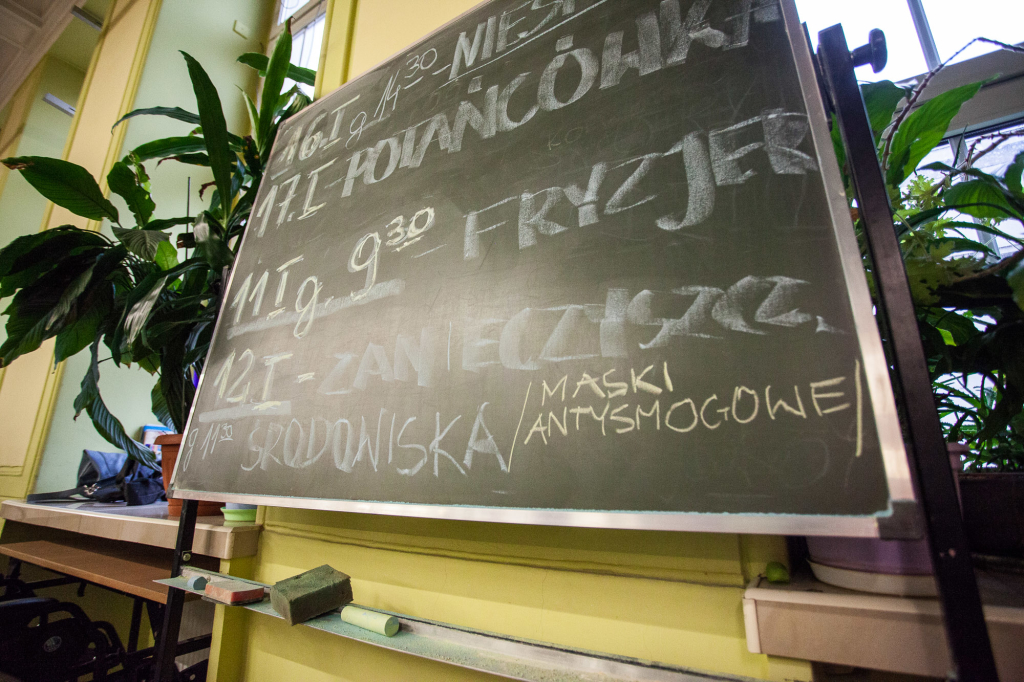 16.I g 14³⁰-NIESP
17.I-POTAŃCÓWKA
11 I g. 9³⁰ FRYZJER
12.I - ZANIECZYSZCZ.
g 11³⁰ ŚRODOWISKA /MASKI
ANTYSMOGOWE/